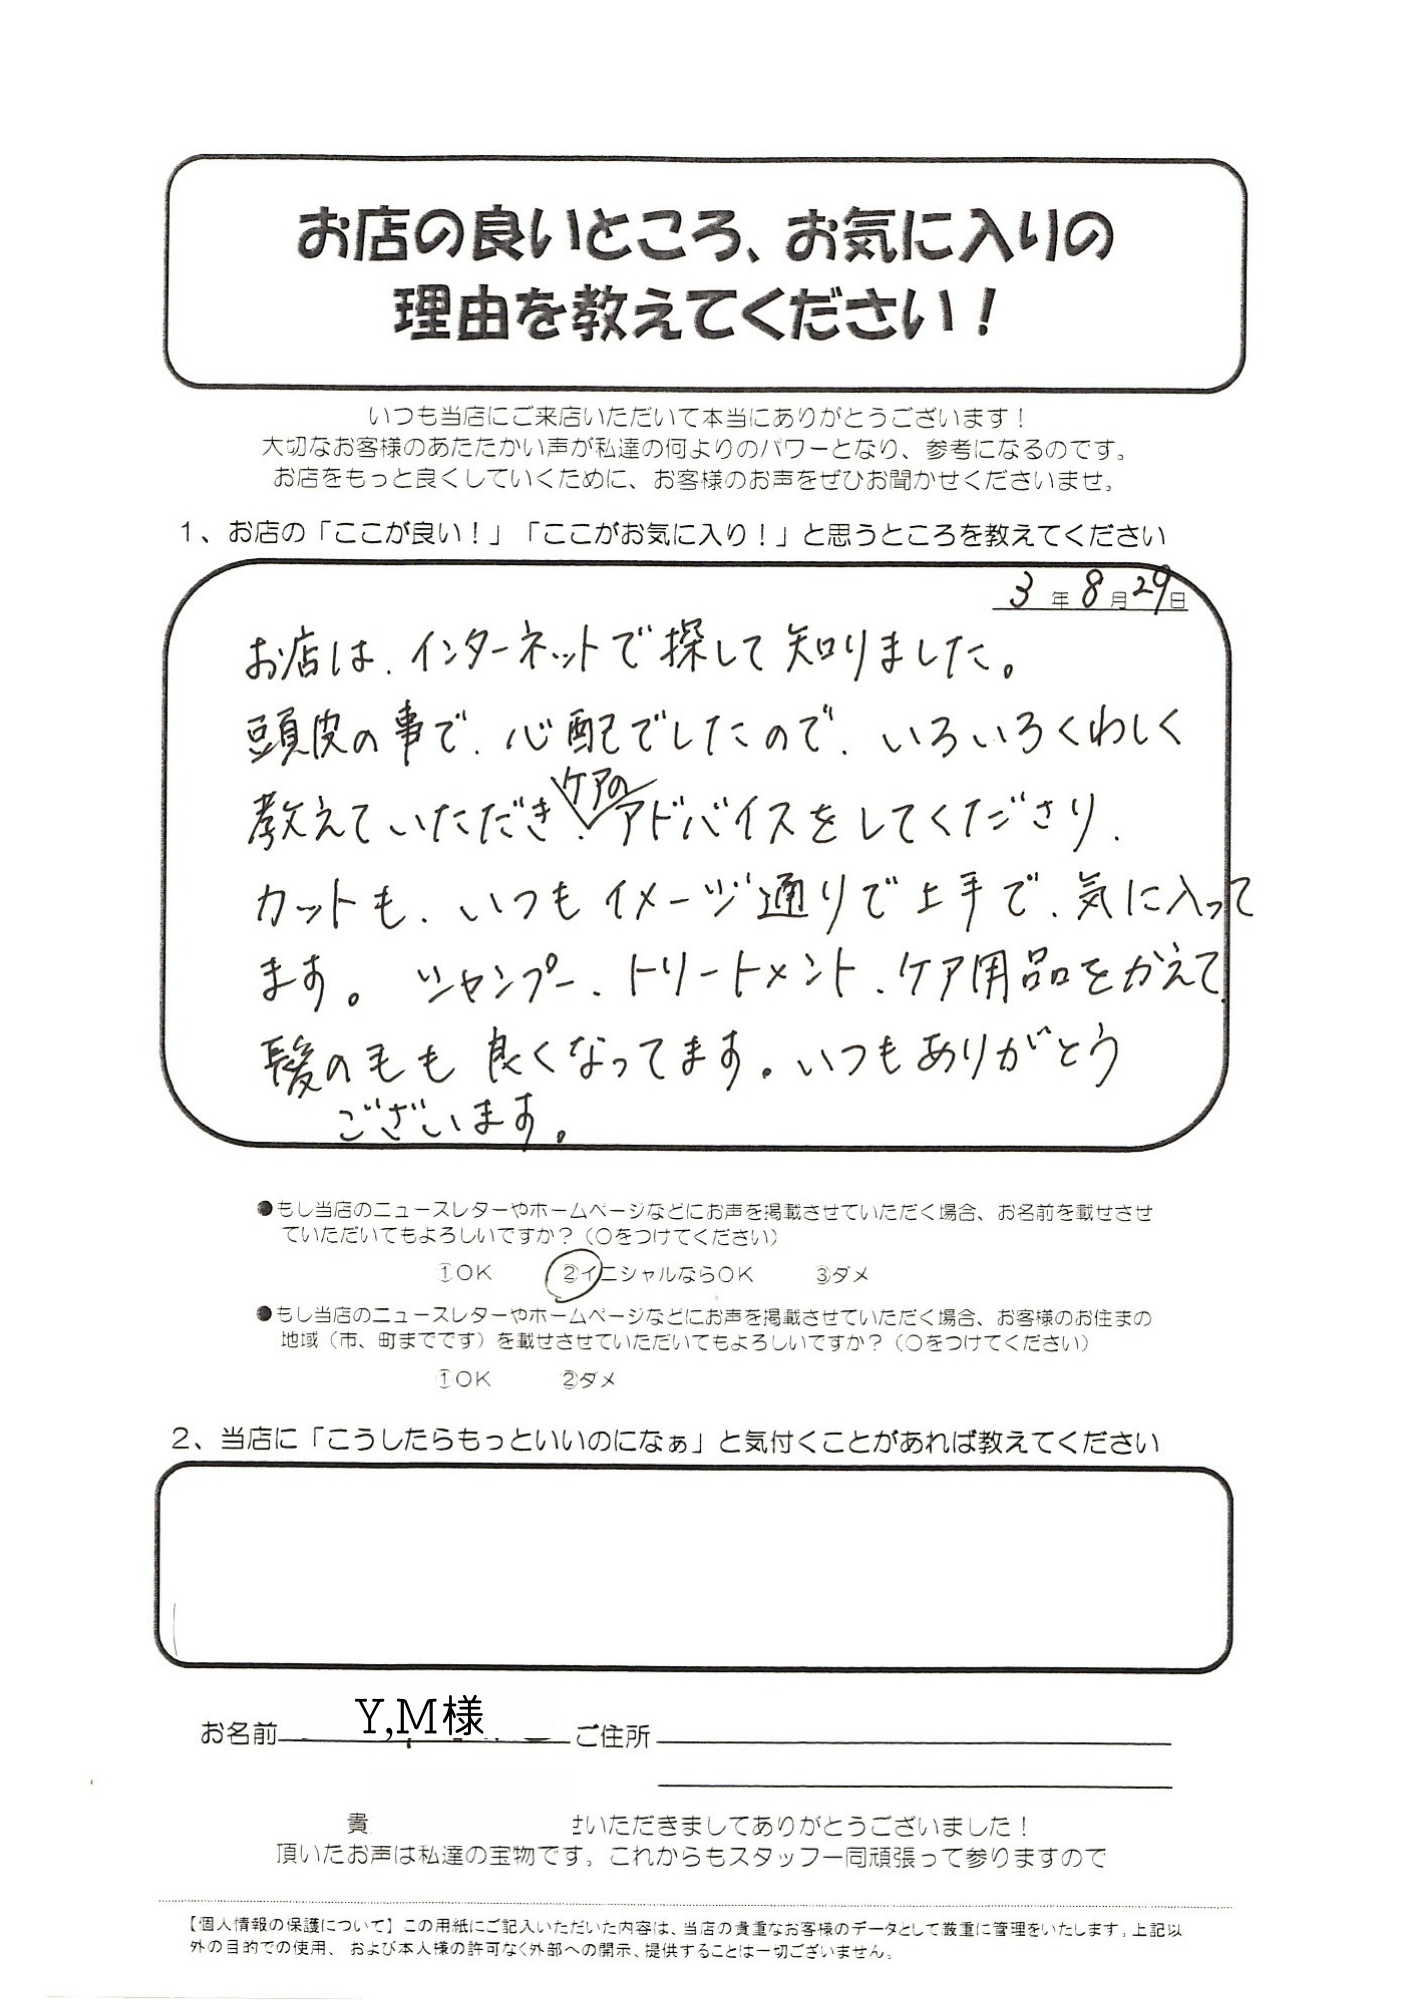 お店の良いところ、お気に入りの
理由を教えてください！
いつも当店にご来店いただいて本当にありがとうございます！
大切なお客様のあたたかい声が私達の何よりのパワーとなり、参考になるのです。
お店をもっと良くしていくために、お客様のお声をぜひお聞かせくださいませ。
1、お店の「ここが良い！」「ここがお気に入り！」と思うところを教えてください
3年8月29日
お店は、インターネットで探して知りました。
頭皮の事で、心配でしたので、いろいろくわしく
教えていただき、ケアのアドバイスをしてくださり、
カットも、いつもイメージ通りで上手で、気に入って
ます。 シャンプー、トリートメント、ケア用品をかえて、
髪の毛も良くなってます。いつもありがとう
ございます。
●もし当店のニュースレターやホームページなどにお声を掲載させていただく場合、お名前を載せさせ
ていただいてもよろしいですか？（○をつけてください）
①OK ②イニシャルならOK ③ダメ
●もし当店のニュースレターやホームページなどにお声を掲載させていただく場合、お客様のお住まの
地域（市、町までです）を載せさせていただいてもよろしいですか？（○をつけてください）
①OK ②ダメ
2、当店に「こうしたらもっといいのになぁ」と気付くことがあれば教えてください
お名前 Y,M様 ご住所
貴 せいただきましてありがとうございました！
頂いたお声は私達の宝物です。これからもスタッフ一同頑張って参りますので
【個人情報の保護について】この用紙にご記入いただいた内容は、当店の貴重なお客様のデータとして厳重に管理をいたします。上記以
外の目的での使用、 および本人様の許可なく外部への開示、提供することは一切ございません。